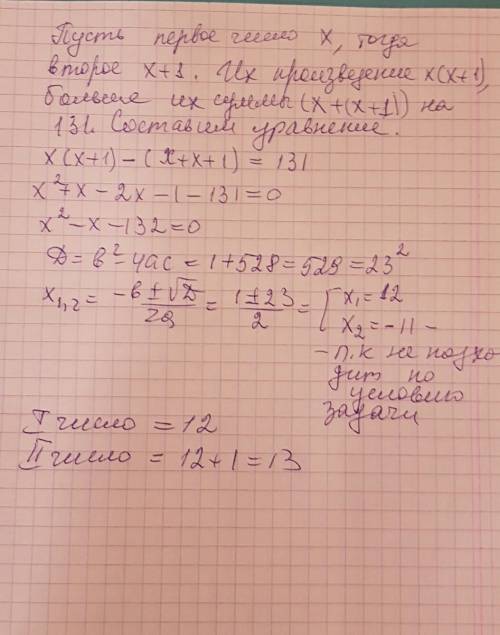 Пусть первое число x, тогда
второе x+1. Их произведение x(x+1),
больше их суммы (x+(x+1)) на
131. Составим уравнение.
x(x+1)-(x+x+1)=131
x²+x-2x-1-131=0
x²-x-132=0
D=b²-4ac=1+528=529=23²
x₁,₂= (-b±√D)/2a = (1±23)/2 = [ x₁=12
x₂=-11 -
- п.к не подхо
дит по
условию
задачи
I число = 12
II число = 12+1=13